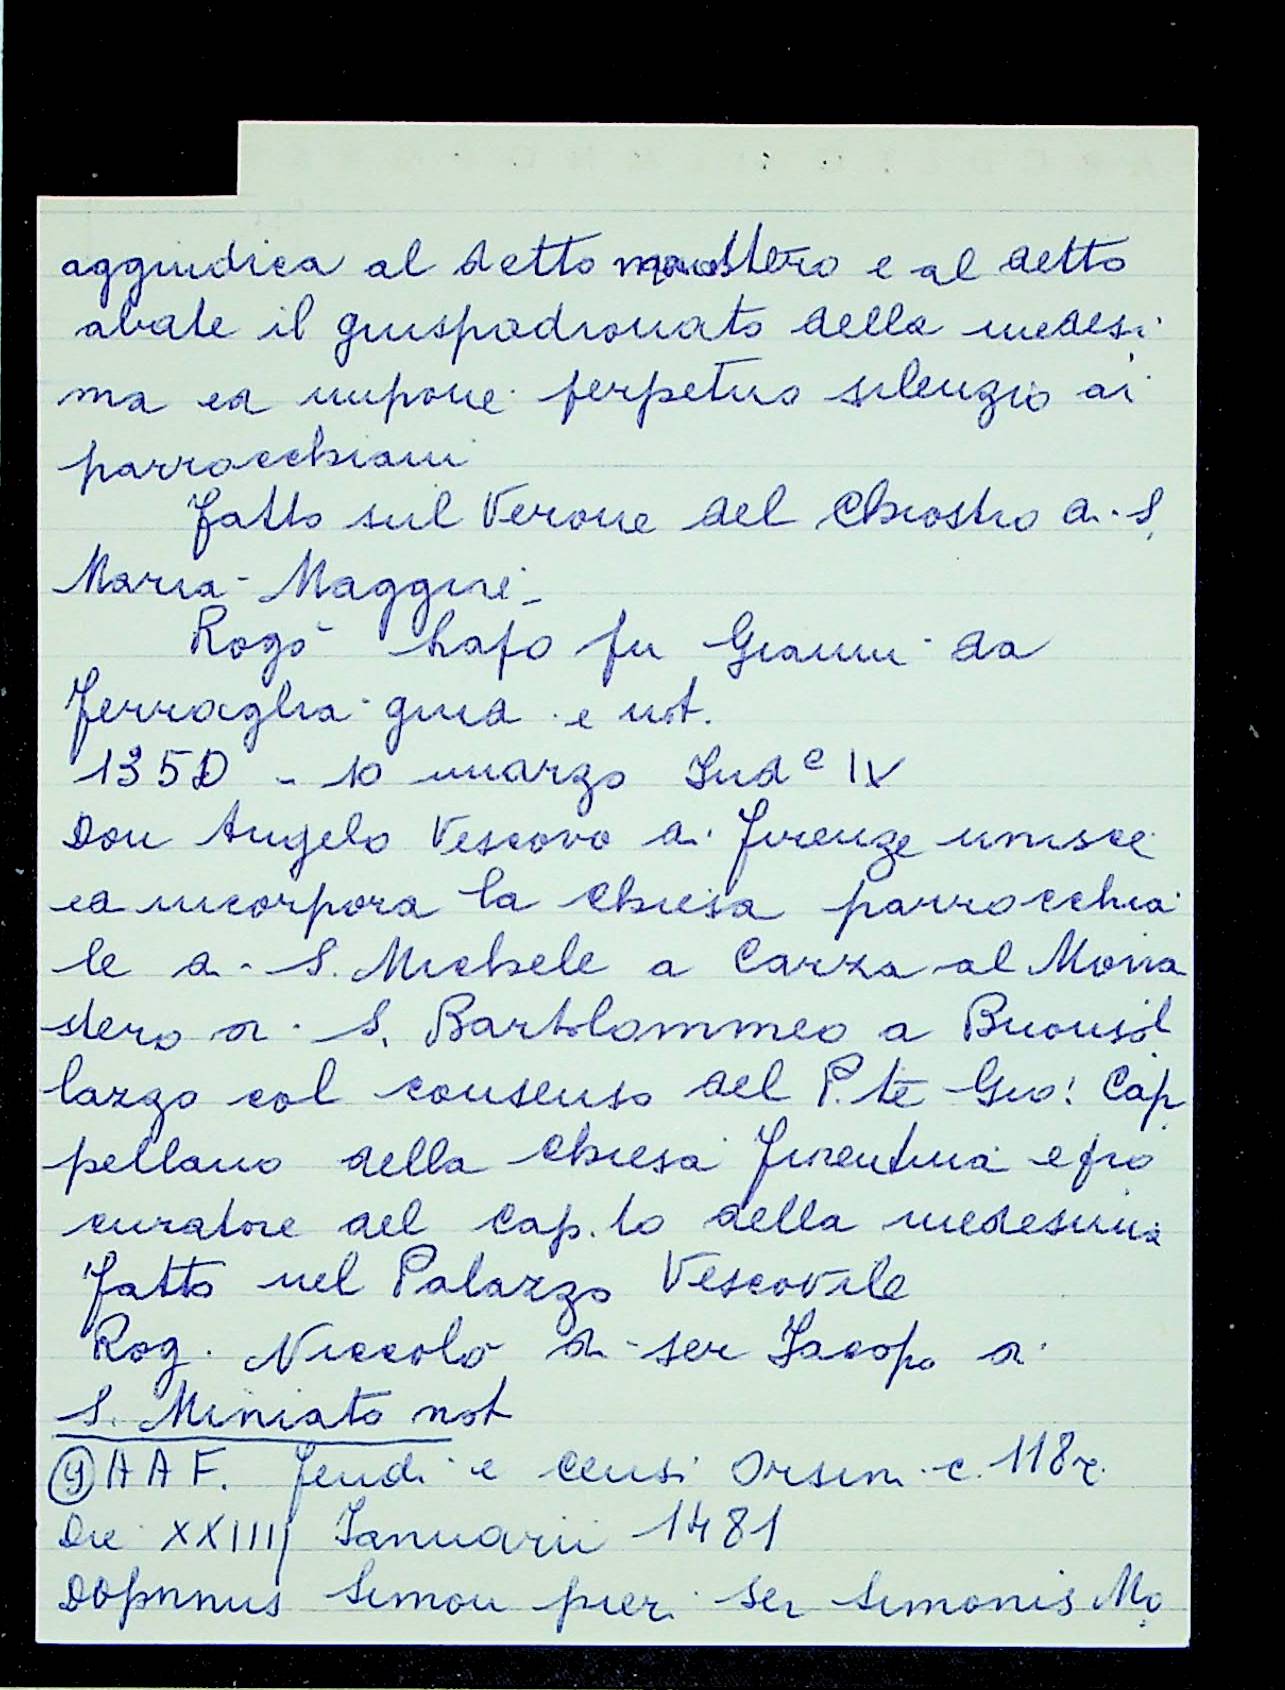 aggiudica al detto monastero e al detto
abate il giuspadronato della medesi
ma ed impone perpetuo silenzio ai
parrocchiani
Fatto sul Verone del Chiostro di S.
Maria Maggiore
Rogò Lapo fu Gianni da
Ferraglia giud. e not.
135D - 10 marzo Ind.e IV
Don Angelo Vescovo di Firenze unisce
ed incorpora la Chiesa parrocchia
le di S. Michele a Carza al Mona
stero di S. Bartolommeo a Buonsol
lazzo col consenso del P.te Gio: Cap
pellano della Chiesa Fiorentina e pro
curatore del Cap.lo della medesima
Fatto nel Palazzo Vescovile
Rog. Niccolò di ser Jacopo di
S. Miniato not
(9) A A F. Feudi e Censi Orsini c. 118r.
Die XXIIIJ Januarii 1481
Simon pieri Ser Simonis Mo